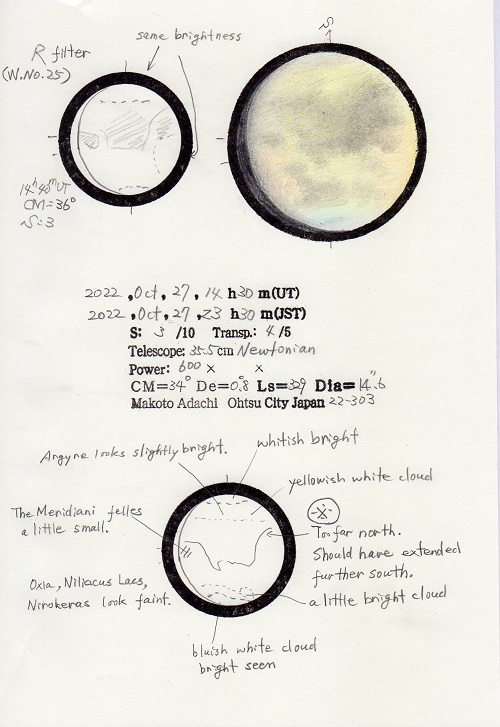 same brightness
R filter
(W.No.25)
S
14h40mUT
CM=36°
S=3
2022 ,Oct, 27, 14 h30 m(UT)
2022 ,Oct, 27, 23 h30 m(JST)
S: 3 /10 Transp.: 4/5
Telescope: 35.5cm Newtonian
Power: 600 x x
CM=34° De=0.8° Ls=329 Dia=14.6"
Makoto Adachi Ohtsu City Japan 22-303
Argyre looks slightly bright.
whitish bright
yellowish white cloud
The Meridiani felles
a little small.
Too far north.
Should have extended
further south.
Oxia, Niliacus Lacs,
Nirokeras look faint.
a little bright cloud
bluish white cloud
bright seen